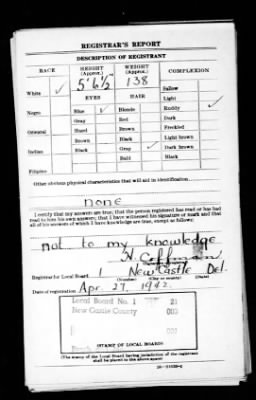 REGISTRAR'S REPORT
DESCRIPTION OF REGISTRANT
RACE
HEIGHT (Approx.)
WEIGHT (Approx.)
COMPLEXION
5' 6 1/2"
138
White ✓
Sallow
EYES
HAIR
Light
Negro
Blue ✓
Blonde
Ruddy ✓
Gray
Red
Dark
Oriental
Hazel
Brown
Freckled
Brown
Black
Light brown
Indian
Black
Gray ✓
Dark brown
Bald
Black
Filipino
Other obvious physical characteristics that will aid in identification
none
I certify that my answers are true; that the person registered has read or has had
read to him his own answers; that I have witnessed his signature or mark and that
all of his answers of which I have knowledge are true, except as follows:
not to my knowledge
Coffman
Registrar for Local Board 1 New Castle Del.
(Number) (City or county) (State)
Date of registration Apr. 27, 1942
Local Board No. 1 21
New Castle County 003
001
(STAMP OF LOCAL BOARD)
(The stamp of the Local Board having jurisdiction of the registrant
shall be placed in the above space)